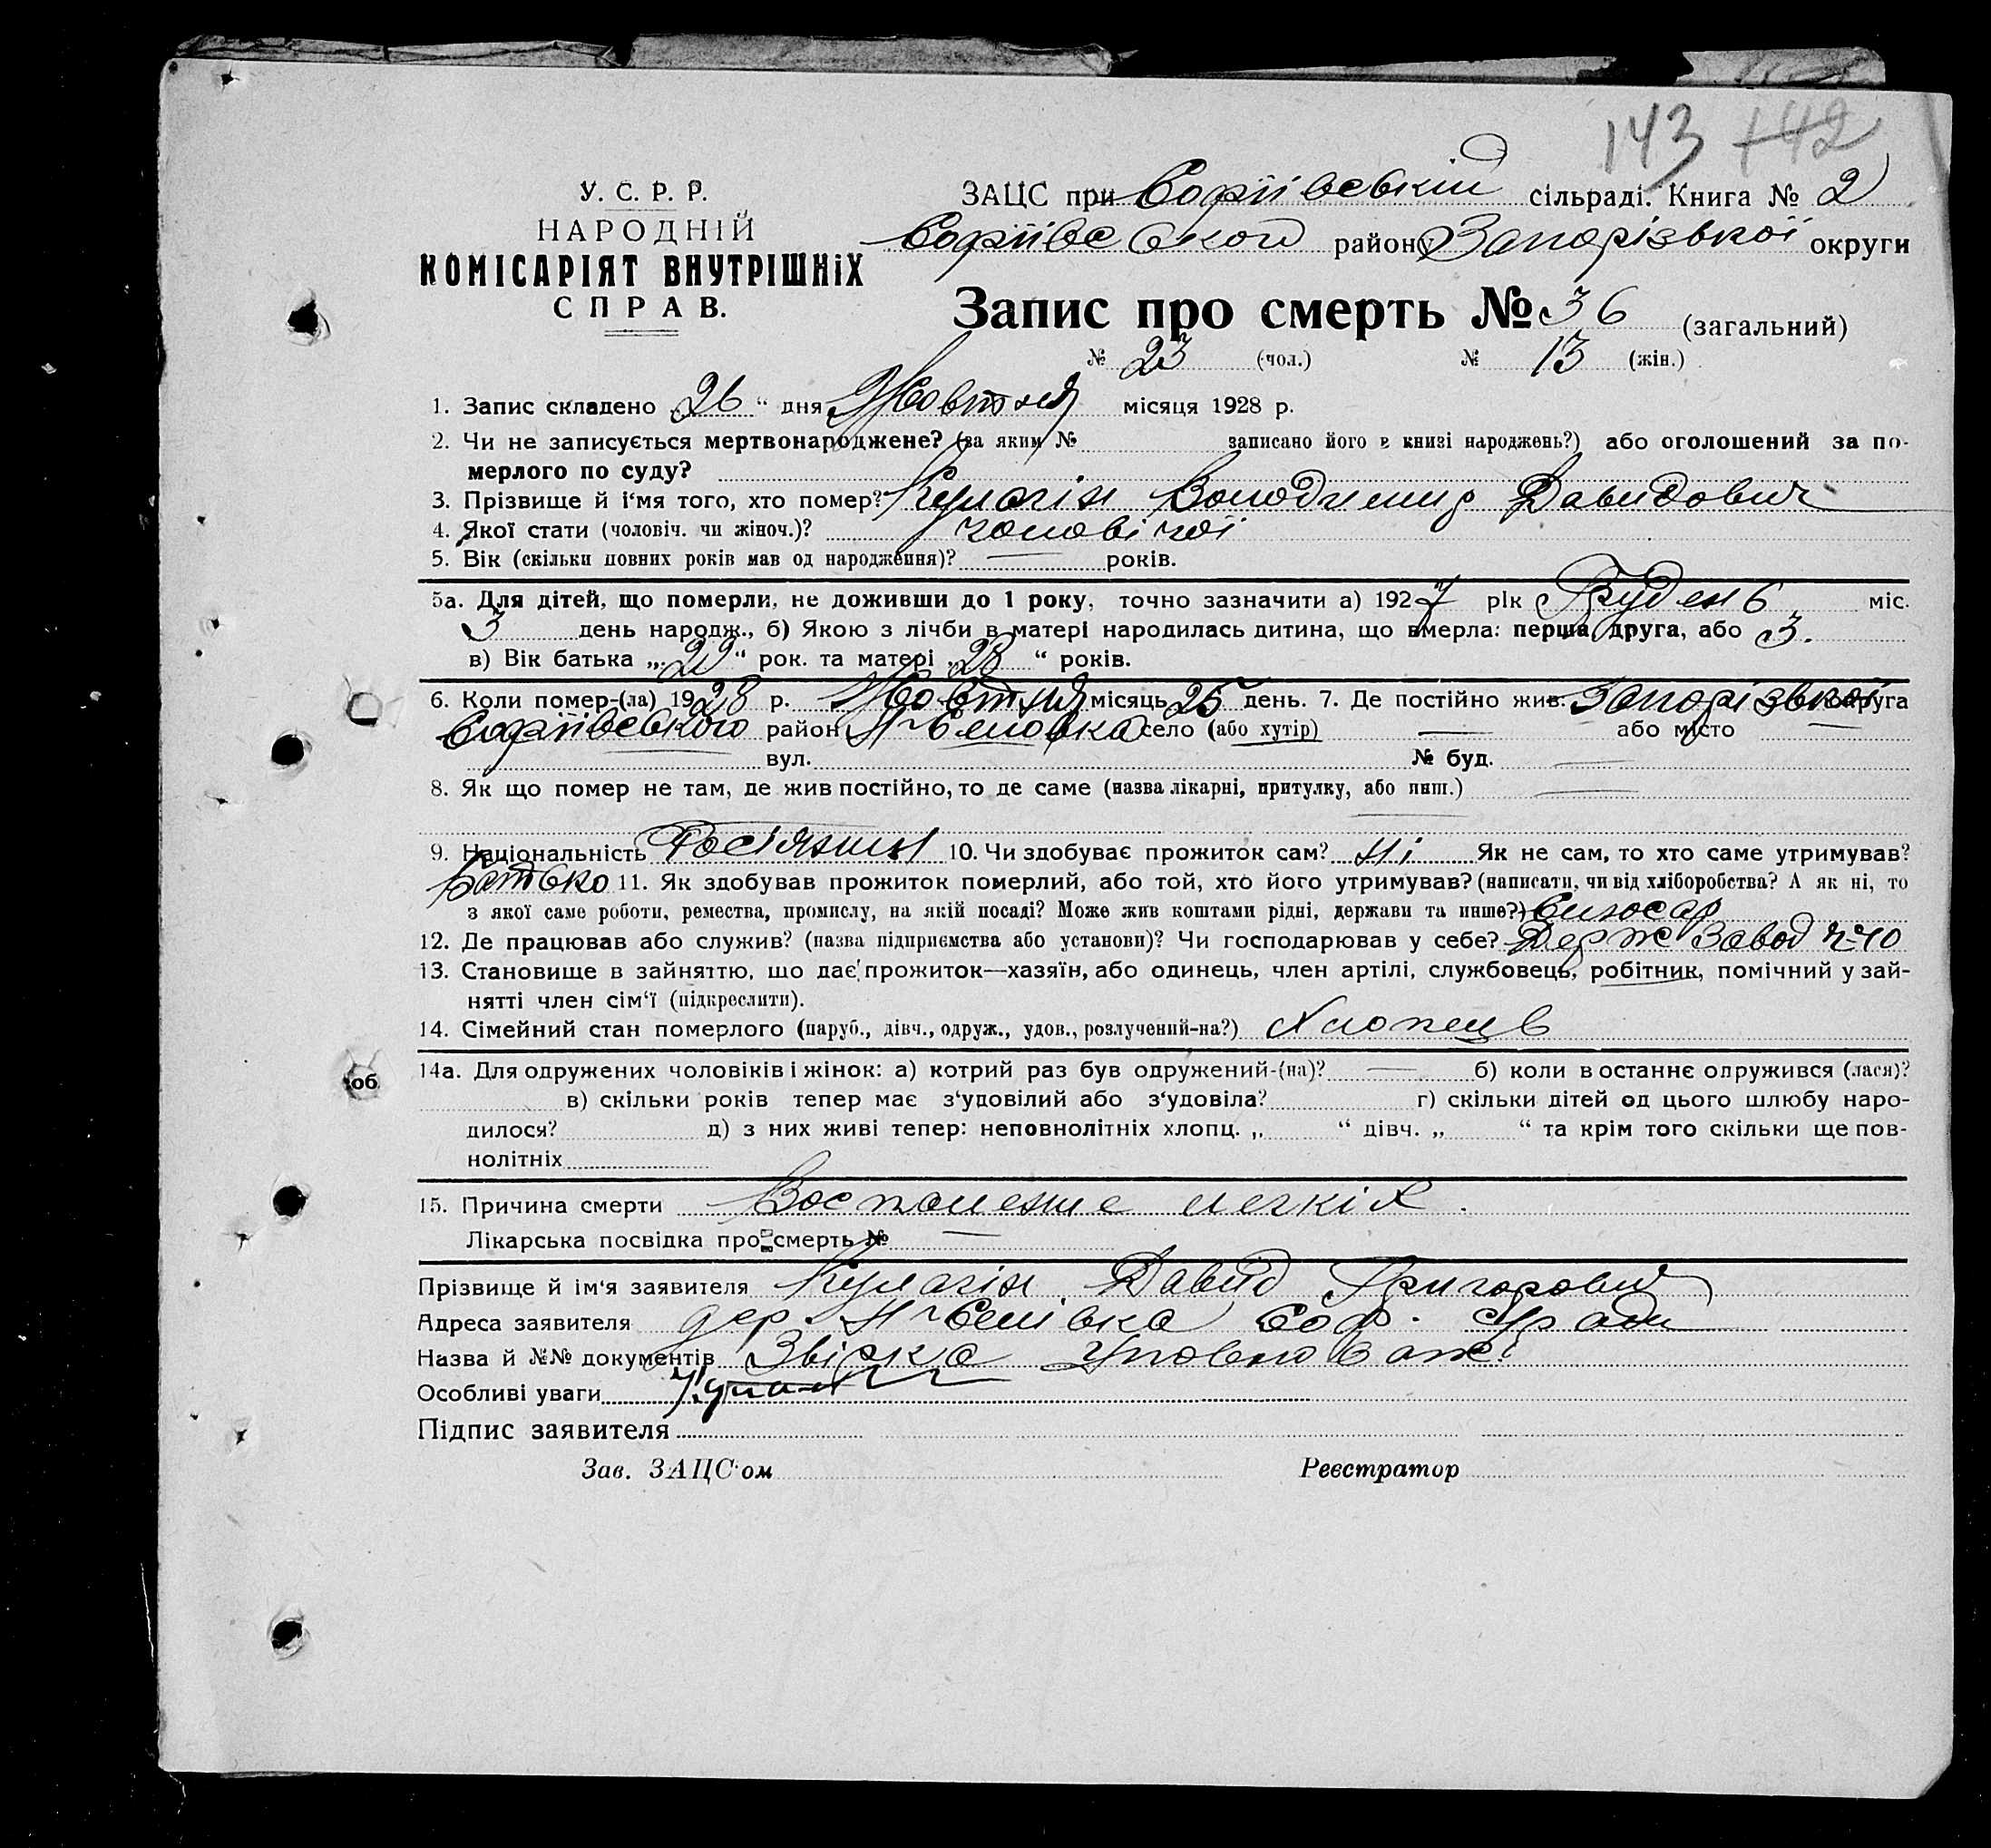 143 142
У. С. Р. Р.
НАРОДНІЙ
КОМІСАРІЯТ ВНУТРІШНІХ
СПРАВ.
ЗАЦС при Софіївській сільраді. Книга № 2
Софіївского району Запорізької округи
Запис про смерть № 36 (загальний)
№ 23 (чол.) № 13 (жін.)
1. Запис складено „26“ дня Жовтня місяця 1928 р.
2. Чи не записується мертвонароджене? (за яким № записано його в книзі народжень?) або оголошений за по-
мерлого по суду?
3. Прізвище й і‘мя того, хто помер? Кулагін Володимир Давидович
4. Якої стати (чоловіч. чи жіноч.)? чоловічої
5. Вік (скільки повних років мав од народження)? — років.
5а. Для дітей, що померли, не доживши до 1 року, точно зазначити а) 1927 рік Грудень міс.
3 день народж., б) Якою з лічби в матері народилась дитина, що вмерла: перша, друга, або 3.
в) Вік батька „29“ рок. та матері „28“ років.
6. Коли помер-(ла) 1928 р. Жовтня місяць 25 день. 7. Де постійно жив. Запорізької округа
Софіївського район село (або хутір) — або місто —
вул. № буд. —
8. Як що помер не там, де жив постійно, то де саме (назва лікарні, притулку, або инш.) —
9. Національність Росіянин 10. Чи здобуває прожиток сам? ні Як не сам, то хто саме утримував?
батько 11. Як здобував прожиток померлий, або той, хто його утримував? (написати, чи від хліборобства? А як ні, то
з якої саме роботи, ремества, промислу, на якій посаді? Може жив коштами рідні, держави та инше?) Слюсар
12. Де працював або служив? (назва підприємства або установи)? Чи господарював у себе? Держ Завод №10
13. Становище в зайняттю, що дає прожиток—хазяїн, або одинець, член артілі, службовець, робітник, помічний у зай-
нятті член сім‘ї (підкреслити).
14. Сімейний стан померлого (паруб., дівч., одруж., удов., розлучений-на?) Хлопець
14а. Для одружених чоловіків і жінок: а) котрий раз був одружений-(на)? — б) коли в останнє одружився (лася)?
в) скільки років тепер має з‘удовілий або з‘удовіла? г) скільки дітей од цього шлюбу наро-
дилося? д) з них живі тепер: неповнолітніх хлопц. „ “ дівч. „ “ та крім того скільки ще пов-
нолітніх
об
15. Причина смерти Воспаление легкіх.
Лікарська посвідка про смерть № —
Прізвище й ім‘я заявителя Кулагін Давид Григорович
Адреса заявителя дер. Соф.
Назва й №№ документів Звірка
Особливі уваги
Підпис заявителя
Зав. ЗАЦС‘ом Реєстратор